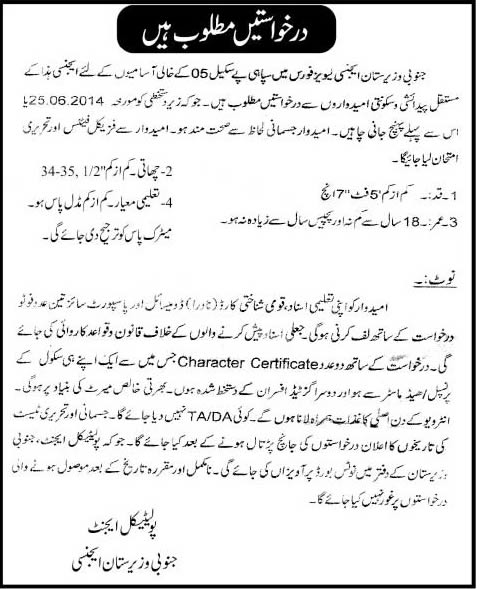 درخواستیں مطلوب ہیں
جنوبی وزیرستان ایجنسی لیویز فورس میں سپاہی پے سکیل 05 کے خالی آسامیوں کے لئے ایجنسی ہذا کے
مستقل پیدائشی و سکونتی امیدواروں سے درخواستیں مطلوب ہیں۔ جو کہ زیر دستخطی کو مورخہ 25.06.2014 یا
اس سے پہلے پہنچ جانی چاہیں۔ امیدوار جسمانی لحاظ سے صحت مند ہو۔ امیدوار سے فزیکل فیٹنس اور تحریری
امتحان لیا جائیگا۔
1۔ قد:۔ کم از کم 5فٹ "7 انچ
2- چھاتی۔ کم از کم "1/2 ,35-34
3۔ عمر:۔ 18 سال سے کم نہ اور پچیس سال سے زیادہ نہ ہو۔
4۔ تعلیمی معیار۔ کم از کم مڈل پاس ہو۔
میٹرک پاس کو ترجیح دی جائے گی۔
نوٹ:۔
امیدوار کو اپنی تعلیمی اسناد، قومی شناختی کارڈ (نادرا) ڈومیسائل اور پاسپورٹ سائز تین عدد فوٹو
درخواست کے ساتھ لف کرنی ہوگی۔ جعلی اسناد پیش کرنے والوں کے خلاف قانون و قواعد کاروائی کی جائے
گی۔ درخواست کے ساتھ دو عدد Character Certificate جس میں سے ایک اپنے ہی سکول کے
پرنسپل/ھیڈ ماسٹر سے ہو اور دوسرا گزیٹڈ افسران کے دستخط شدہ ہوں۔ بھرتی خالص میرٹ کی بنیاد پر ہوگی۔
انٹرویو کے دن اصلی کاغذات ہمراہ لانا ہوں گے۔ کوئی TA/DA نہیں دیا جائے گا۔ جسمانی اور تحریری ٹیسٹ
کی تاریخوں کا اعلان درخواستوں کی جانچ پڑتال ہونے کے بعد کیا جائے گا۔ جو کہ پولیٹیکل ایجنٹ، جنوبی
وزیرستان کے دفتر میں نوٹس بورڈ پر آویزاں کی جائے گی۔ نامکمل اور مقررہ تاریخ کے بعد موصول ہونے والی
درخواستوں پر غور نہیں کیا جائے گا۔
پولیٹیکل ایجنٹ
جنوبی وزیرستان ایجنسی